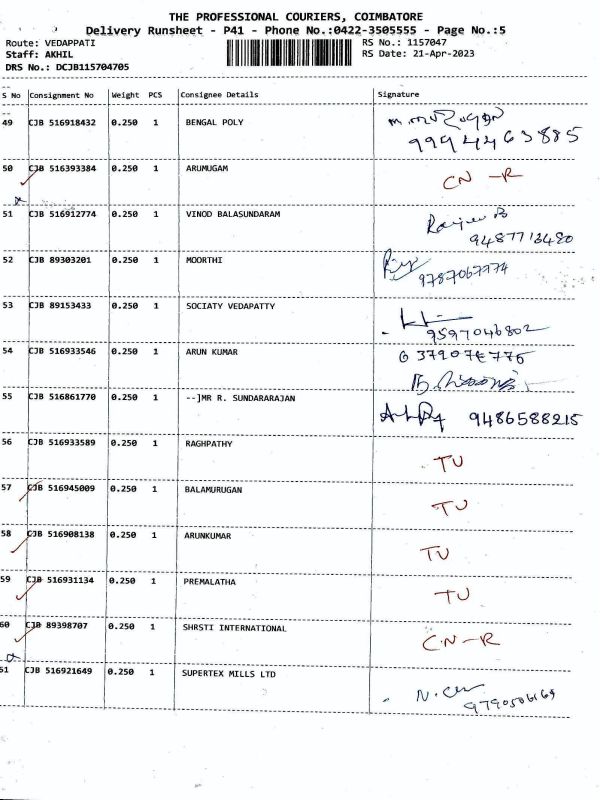 THE PROFESSIONAL COURIERS, COIMBATORE
Delivery Runsheet - P41 - Phone No.:0422-3505555 - Page No.:5
Route: VEDAPPATI RS No.: 1157047
Staff: AKHIL RS Date: 21-Apr-2023
DRS No.: DCJB115704705
S No Consignment No Weight PCS Consignee Details Signature
49 CJB 516918432 0.250 1 BENGAL POLY
9994463885
50 CJB 516393384 0.250 1 ARUMUGAM CN-R
51 CJB 516912774 0.250 1 VINOD BALASUNDARAM
9487713480
52 CJB 89303201 0.250 1 MOORTHI
9787067774
53 CJB 89153433 0.250 1 SOCIATY VEDAPATTY
9597046802
54 CJB 516933546 0.250 1 ARUN KUMAR
55 CJB 516861770 0.250 1 --]MR R. SUNDARARAJAN 9486588215
56 CJB 516933589 0.250 1 RAGHPATHY TU
57 CJB 516945009 0.250 1 BALAMURUGAN TU
58 CJB 516908138 0.250 1 ARUNKUMAR TU
59 CJB 516931134 0.250 1 PREMALATHA TU
60 CJB 89398707 0.250 1 SHRSTI INTERNATIONAL CN-R
61 CJB 516921649 0.250 1 SUPERTEX MILLS LTD